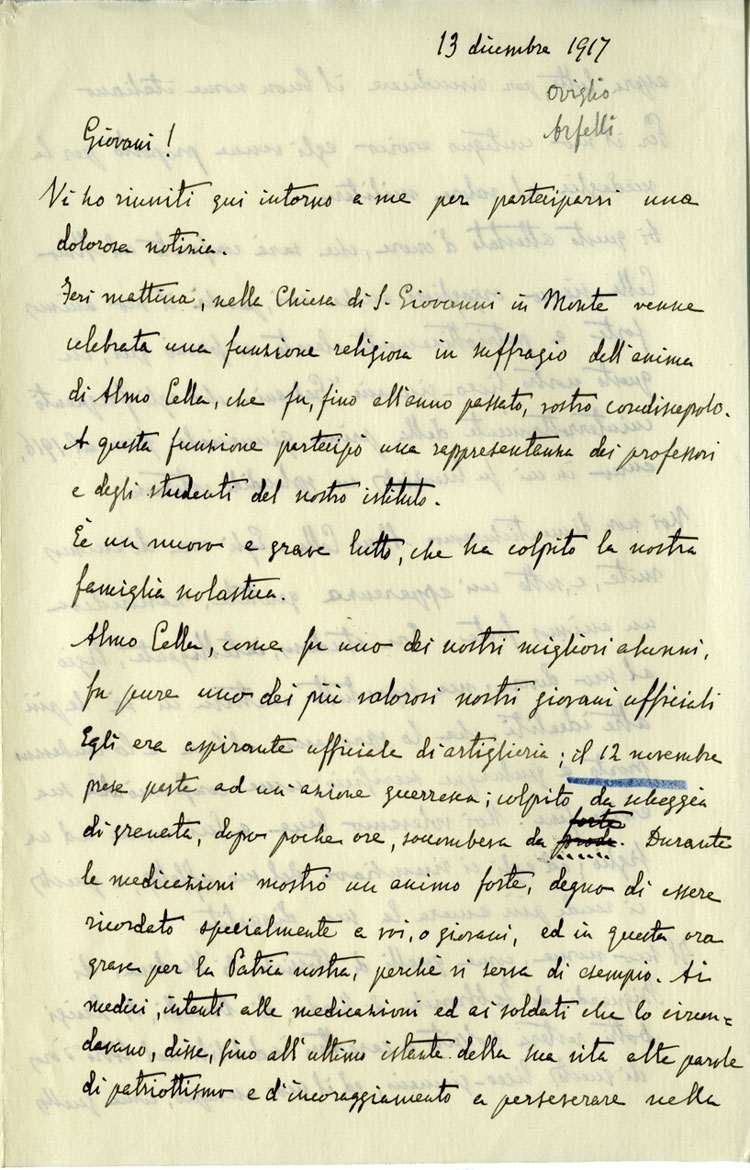 13 dicembre 1917
Oviglio
Arfelli
Giovani!
Vi ho riuniti qui intorno a me per parteciparvi una
dolorosa notizia.
Jeri mattina, nella Chiesa di S. Giovanni in Monte venne
celebrata una funzione religiosa in suffragio dell'anima
di Almo Cella, che fu, fino all'anno passato, vostro condiscepolo.
A questa funzione partecipò una rappresentanza dei professori
e degli studenti del nostro istituto.
È un nuovo e grave lutto, che ha colpito la nostra
famiglia scolastica.
Almo Cella, come fu uno dei nostri migliori alunni,
fu pure uno dei più valorosi nostri giovani ufficiali
Egli era aspirante ufficiale di artiglieria; il 12 novembre
prese parte ad un'azione guerresca; colpito da scheggia
forte
di granata, dopo poche ore, soccombeva da prode. Durante
le medicazioni mostrò un animo forte, degno di essere
ricordato specialmente a voi, o giovani, ed in questa ora
grave per la Patria nostra, perchè vi serva di esempio. Ai
medici, intenti alle medicazioni ed ai soldati che lo circon=
davano, disse, fino all'ultimo istante della sua vita alte parole
di patriottismo e d'incoraggiamento a perseverare nella